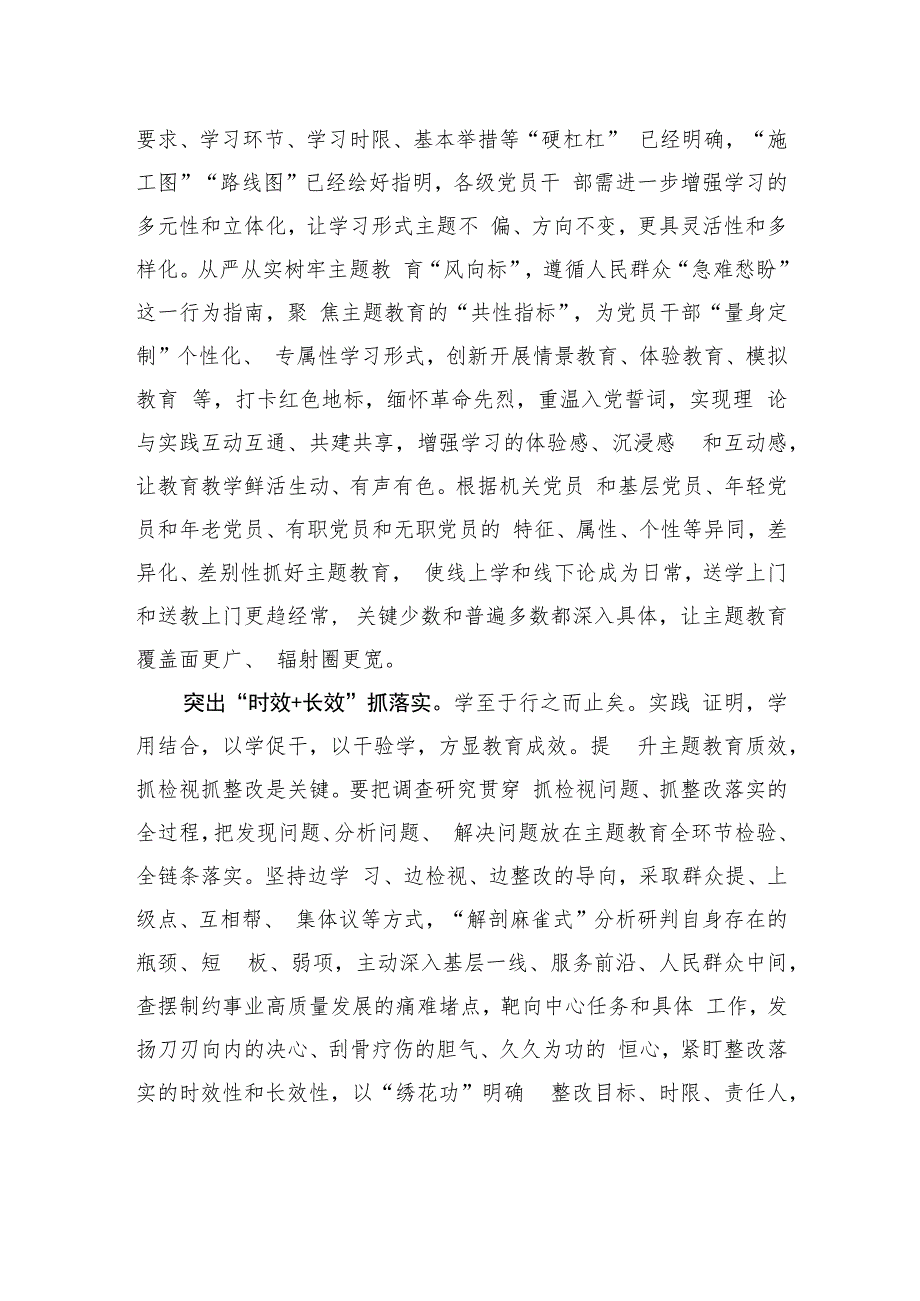 要求、学习环节、学习时限、基本举措等“硬杠杠” 已经明确，“施
工图”“路线图”已经绘好指明，各级党员干 部需进一步增强学习的
多元性和立体化，让学习形式主题不 偏、方向不变，更具灵活性和多
样化。从严从实树牢主题教 育“风向标”，遵循人民群众“急难愁盼”
这一行为指南，聚 焦主题教育的“共性指标”，为党员干部“量身定
制”个性化、 专属性学习形式，创新开展情景教育、体验教育、模拟
教育 等，打卡红色地标，缅怀革命先烈，重温入党誓词，实现理 论
与实践互动互通、共建共享，增强学习的体验感、沉浸感 和互动感，
让教育教学鲜活生动、有声有色。根据机关党员 和基层党员、年轻党
员和年老党员、有职党员和无职党员的 特征、属性、个性等异同，差
异化、差别性抓好主题教育， 使线上学和线下论成为日常，送学上门
和送教上门更趋经常， 关键少数和普遍多数都深入具体，让主题教育
覆盖面更广、 辐射圈更宽。
突出“时效+长效”抓落实。学至于行之而止矣。实践 证明，学
用结合，以学促干，以干验学，方显教育成效。提 升主题教育质效，
抓检视抓整改是关键。要把调查研究贯穿 抓检视问题、抓整改落实的
全过程，把发现问题、分析问题、 解决问题放在主题教育全环节检验、
全链条落实。坚持边学 习、边检视、边整改的导向，采取群众提、上
级点、互相帮、 集体议等方式，“解剖麻雀式”分析研判自身存在的
瓶颈、短 板、弱项，主动深入基层一线、服务前沿、人民群众中间，
查摆制约事业高质量发展的痛难堵点，靶向中心任务和具体 工作，发
扬刀刃向内的决心、刮骨疗伤的胆气、久久为功的 恒心，紧盯整改落
实的时效性和长效性，以“绣花功”明确 整改目标、时限、责任人，